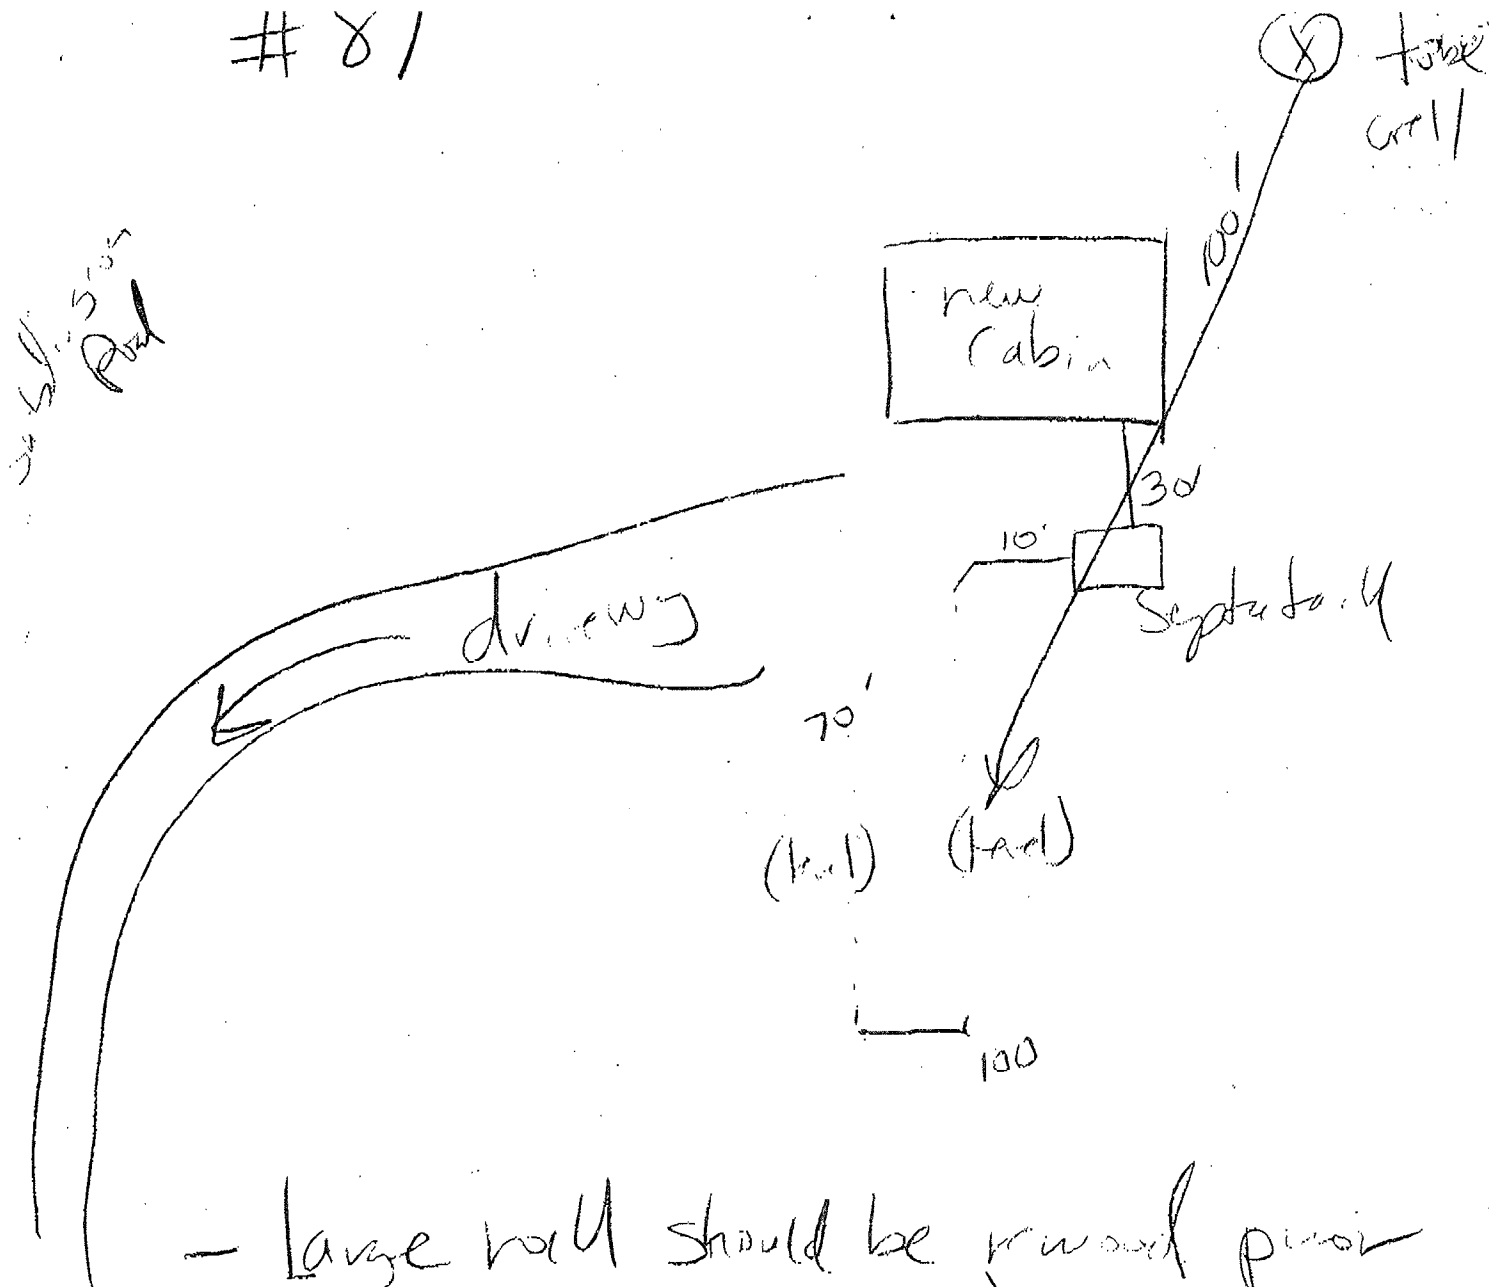 # 81
tube
well
100'
new
Cabin
Road
30'
10'
Septic tank
driveway
70'
100
- Large rock should be removed prior